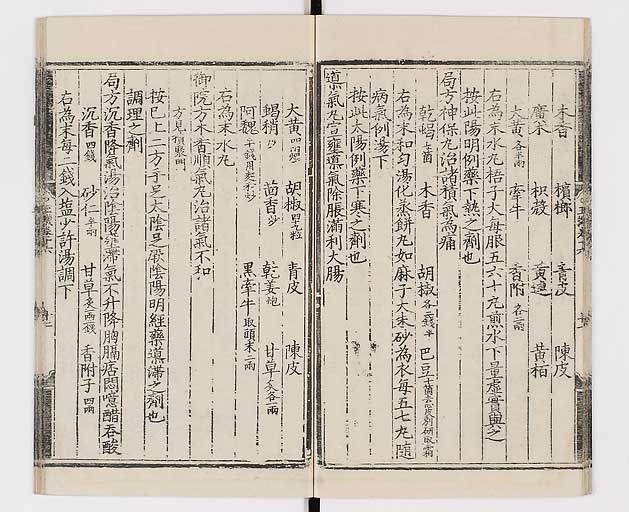 木香 檳榔 青皮 陳皮
廣朮 枳殼 黃連 黃栢
大黃各半兩 牽牛 香附各二兩
右為末水丸梧子大每服五六十丸煎水下量虛實與之
按此陽明例藥下熱之劑也
局方神保丸治諸積氣為痛
乾蝎七箇 木香 胡椒各二錢半 巴豆十箇去心皮別研取霜
右為末和勻湯化蒸餅丸如麻子大朱砂為衣每五七丸隨
病氣例湯下
按此太陽例藥下寒之劑也
導氣丸宣壅導氣除脹滿利大腸
大黃四兩 胡椒四十九粒 青皮 陳皮
蝎稍炒 茴香炒 乾姜炮 甘草炙各一兩
阿魏 黑牽牛取頭末二兩
右為末水丸
御院方木香順氣丸治諸氣不和
方見積聚門
按已上二方手足太陰足厥陰陽明經藥導滯之劑也
調理之劑
局方沉香降氣湯治陰陽壅滯氣不升降胸膈痞悶噫醋吞酸
沉香四錢 砂仁 甘草炙 香附子四兩
右為末每二錢入塩少許湯調下